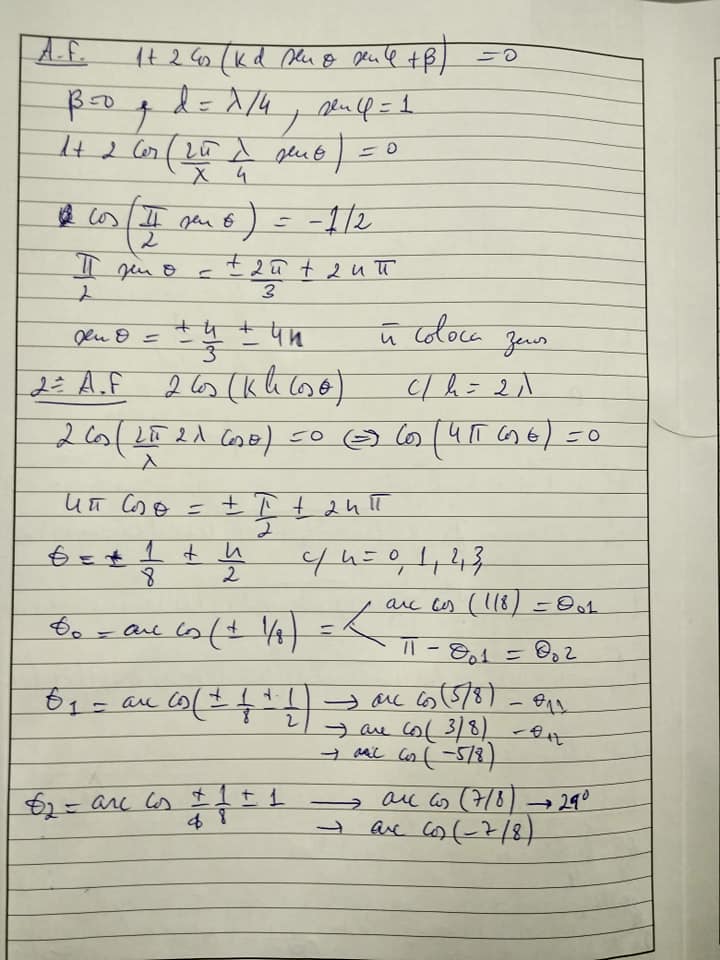 A.F. 1 + 2 cos(Kd sen θ sen φ + β) = 0
β=0, d = λ/4, sen φ = 1
1 + 2 cos(2π/λ λ/4 sen θ) = 0
cos(π/2 sen θ) = -1/2
π/2 sen θ = ± 2π/3 ± 2nπ
sen θ = ± 4/3 ± 4n ñ coloca zeros
2º A.F 2 cos(K h cos θ) c/ h = 2λ
2 cos(2π/λ 2λ cos θ) = 0 ⇔ cos(4π cos θ) = 0
4π cos θ = ± π/2 ± 2nπ
θ = ± 1/8 ± n/2 c/ n = 0, 1, 2, 3,
θ0 = arc cos(± 1/8) = < arc cos (1/8) = θ01
π - θ01 = θ02
θ1 = arc cos(± 1/8 ± 1/2) → arc cos(5/8) - θ11
→ arc cos( 3/8) - θ12
→ arc cos(-5/8)
θ2 = arc cos ± 1/8 ± 1 → arc cos (7/8) → 29°
→ arc cos(-7/8)